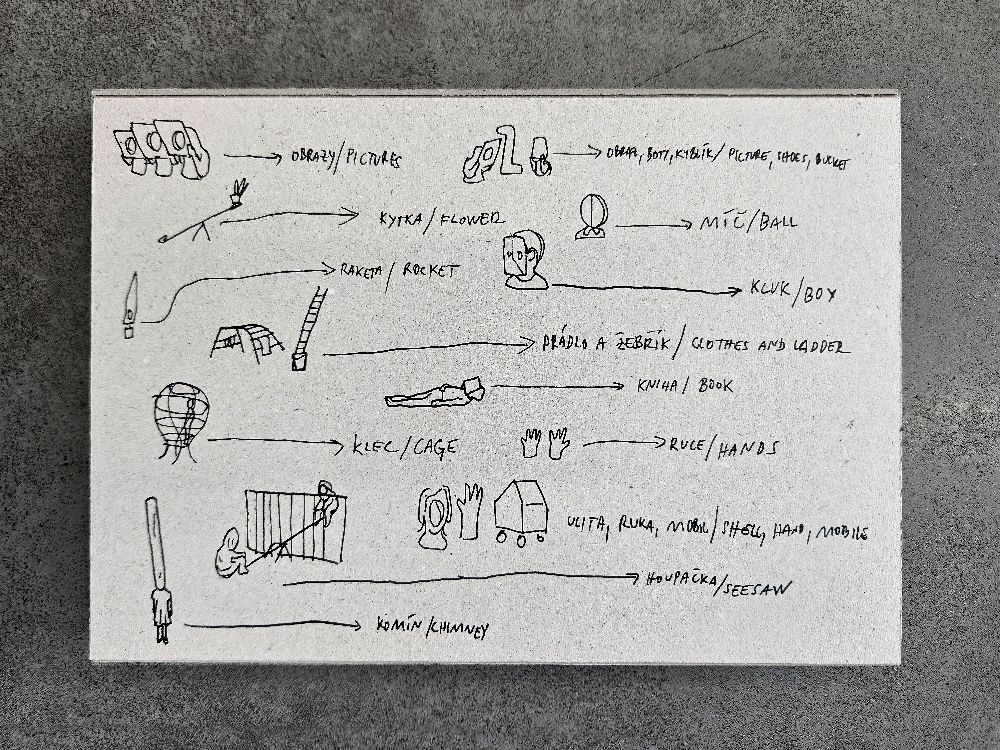 OBRAZY/PICTURES
OBRAZ, BOTY, KYBLÍK/ PICTURE, SHOES, BUCKET
KYTKA/FLOWER
MÍČ/BALL
RAKETA/ROCKET
KLUK/BOY
PRÁDLO A ŽEBŘÍK/ CLOTHES AND LADDER
KNIHA/ BOOK
KLEC/CAGE
RUCE/HANDS
ULITA, RUKA, MOBIL/SHELL, HAND, MOBILE
HOUPAČKA/SEESAW
KOMÍN/CHIMNEY